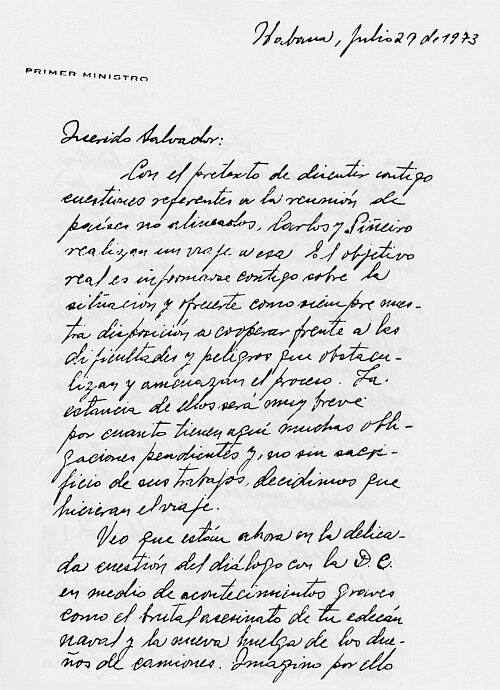 Habana, Julio 29 de 1973
PRIMER MINISTRO
Querido Salvador:
Con el pretexto de discutir contigo
cuestiones referentes a la reunión de
países no alineados, Carlos y Piñeiro
realizan un viaje a esa. El objetivo
real es informarse contigo sobre la
situación y ofrecerte como siempre nues-
tra disposición a cooperar frente a las
dificultades y peligros que obstacu-
lizan y amenazan el proceso. La
estancia de ellos será muy breve
por cuanto tienen aquí muchas obli-
gaciones pendientes y, no sin sacri-
ficio de sus trabajos, decidimos que
hicieran el viaje.
Veo que están ahora en la delica-
da cuestión del diálogo con la D.C.
en medio de acontecimientos graves
como el brutal asesinato de tu edecán
naval y la nueva huelga de los due-
ños de camiones. Imagino por ello